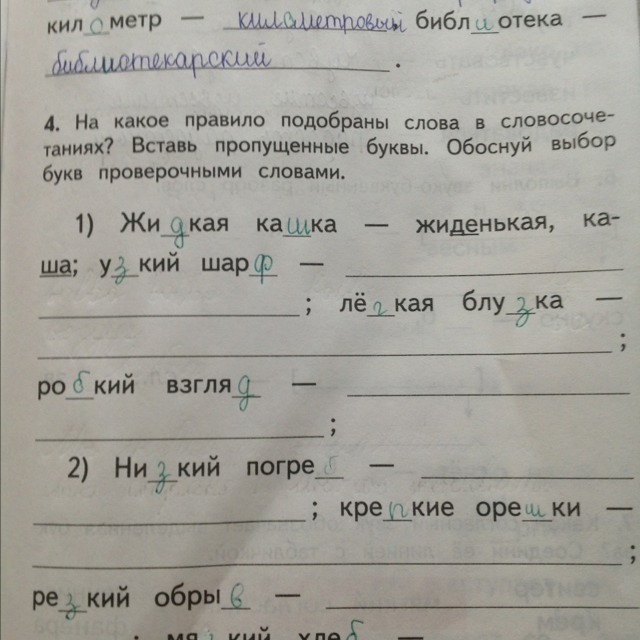 кил о метр — километровый библ и отека —
библиотекарский .
4. На какое правило подобраны слова в словосоче-
таниях? Вставь пропущенные буквы. Обоснуй выбор
букв проверочными словами.
1) Жи д кая ка ш ка — жиденькая, ка-
ша; у з кий шар ф —
; лё г кая блу з ка —
;
ро б кий взгля д —
;
2) Ни з кий погре б —
; кре п кие оре ш ки —
;
ре з кий обры в —
; мя г кий хле б —